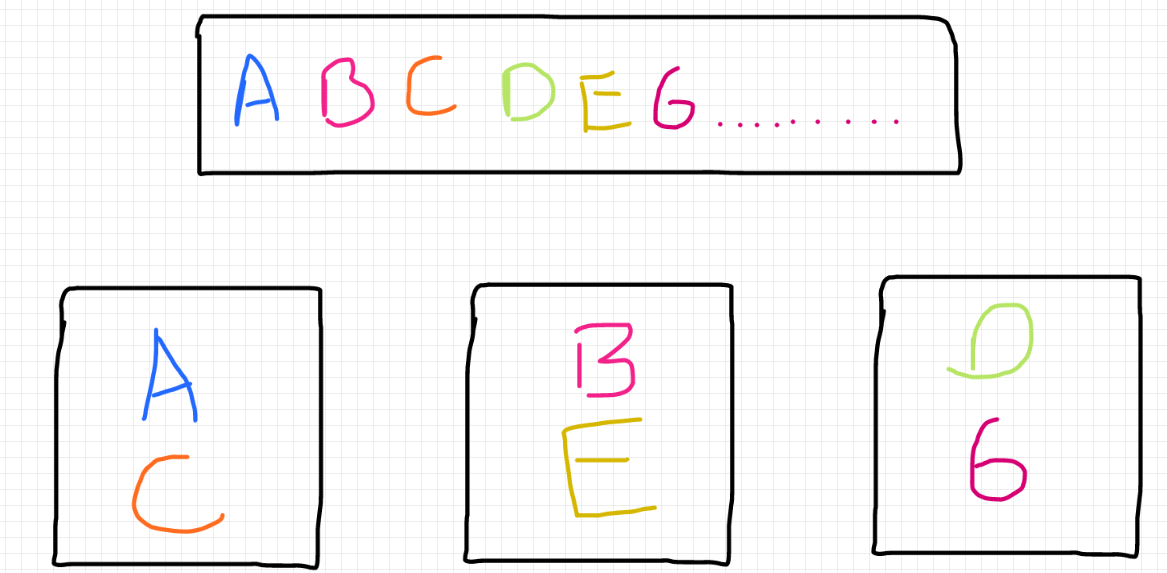 A B C D E G.........
A
C
B
E
D
6